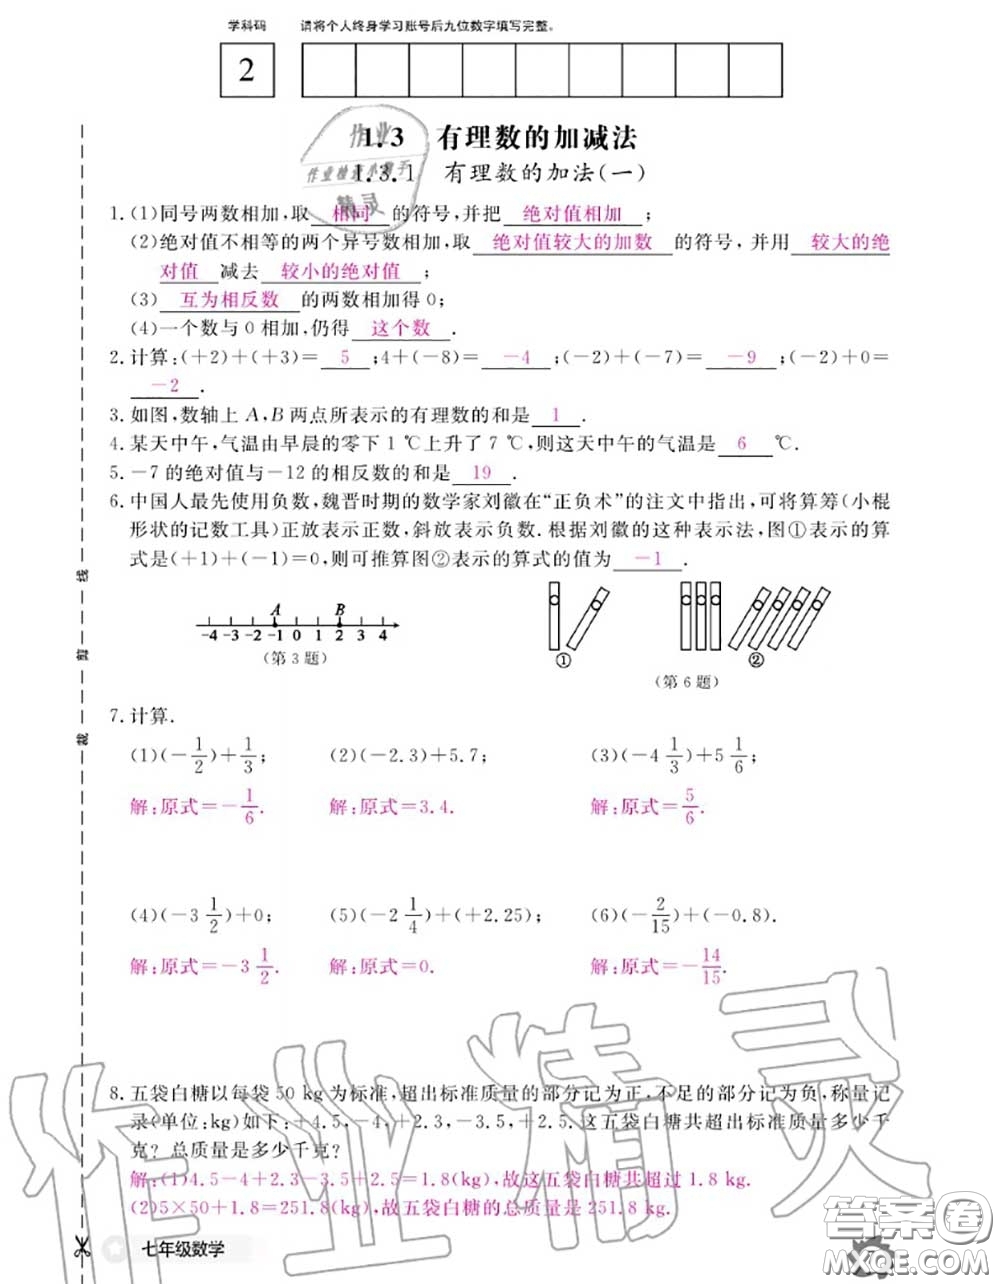 学科码 请将个人终身学习账号后九位数字填写完整。
2
1.3 有理数的加减法
1.3.1 有理数的加法(一)
作业
作业检查小助手
精灵
1.(1)同号两数相加,取 相同 的符号,并把 绝对值相加 ;
(2)绝对值不相等的两个异号数相加,取 绝对值较大的加数 的符号,并用 较大的绝
对值 减去 较小的绝对值 ;
(3) 互为相反数 的两数相加得0;
(4)一个数与0相加,仍得 这个数 .
2.计算:(+2)+(+3)= 5 ;4+(-8)= -4 ;(-2)+(-7)= -9 ;(-2)+0=
-2 .
3.如图,数轴上A,B两点所表示的有理数的和是 1 .
4.某天中午,气温由早晨的零下1 ℃上升了7 ℃,则这天中午的气温是 6 ℃.
5.-7的绝对值与-12的相反数的和是 19 .
6.中国人最先使用负数,魏晋时期的数学家刘徽在“正负术”的注文中指出,可将算筹(小棍
形状的记数工具)正放表示正数,斜放表示负数.根据刘徽的这种表示法,图①表示的算
式是(+1)+(-1)=0,则可推算图②表示的算式的值为 -1 .
A B
-4 -3 -2 -1 0 1 2 3 4
(第3题)
① ②
(第6题)
7.计算.
(1)(-1/2)+1/3; (2)(-2.3)+5.7; (3)(-4 1/3)+5 1/6;
解:原式=-1/6. 解:原式=3.4. 解:原式=5/6.
(4)(-3 1/2)+0; (5)(-2 1/4)+(+2.25); (6)(-2/15)+(-0.8).
解:原式=-3 1/2. 解:原式=0. 解:原式=-14/15.
8.五袋白糖以每袋50 kg为标准,超出标准质量的部分记为正,不足的部分记为负,称量记
录(单位:kg)如下:+4.5,-4,+2.3,-3.5,+2.5.这五袋白糖共超出标准质量多少千
克? 总质量是多少千克?
解:(1)4.5-4+2.3-3.5+2.5=1.8(kg),故这五袋白糖共超过1.8 kg.
(2)5×50+1.8=251.8(kg),故五袋白糖的总质量是251.8 kg.
裁 剪 线
作业精灵
七年级数学
答案圈
MXQE.COM